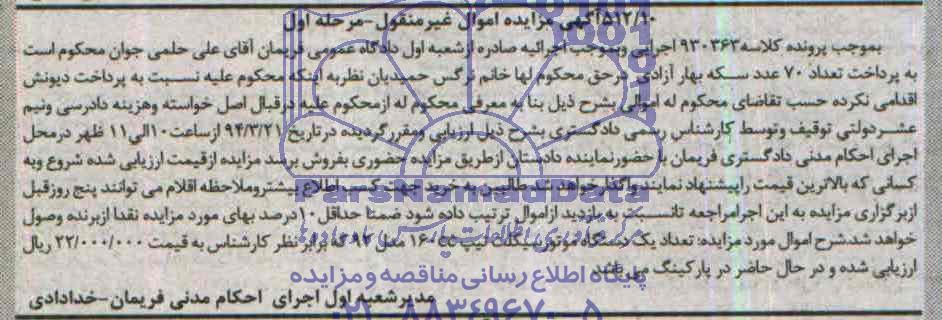 ۵۱۲/۱۰آگهی مزایده اموال غیرمنقول-مرحله اول
بموجب پرونده کلاسه۹۳۰۳۶۳ اجرایی وبموجب اجرائیه صادره ازشعبه اول دادگاه عمومی فریمان آقای علی حلمی جوان محکوم است
به پرداخت تعداد ۷۰ عدد سکه بهار آزادی درحق محکوم لها خانم نرگس حمیدیان نظربه اینکه محکوم علیه نسبت به پرداخت دیونش
اقدامی نکرده حسب تقاضای محکوم له اموالی بشرح ذیل بنا به معرفی محکوم له ازمحکوم علیه درقبال اصل خواسته وهزینه دادرسی ونیم
عشردولتی توقیف وتوسط کارشناس رسمی دادگستری بشرح ذیل ارزیابی ومقررگردیده درتاریخ ۹۴/۳/۲۱ ازساعت۱۰الی۱۱ ظهر درمحل
اجرای احکام مدنی دادگستری فریمان با حضورنماینده دادستان ازطریق مزایده حضوری بفروش برسد مزایده ازقیمت ارزیابی شده شروع وبه
کسانی که بالاترین قیمت راپیشنهاد نمایندواگذارخواهد شد طالبین به خرید جهت کسب اطلاع بیشتروملاحظه اقلام می توانند پنج روزقبل
ازبرگزاری مزایده به این اجرامراجعه تانسبت به بازدید ازاموال ترتیب داده شود ضمنا حداقل ۱۰درصد بهای مورد مزایده نقدا ازبرنده وصول
خواهد شد.شرح اموال مورد مزایده: تعداد یک دستگاه موتورسیکلت تیپ ۱۶۰cc مدل ۹۲ که برابر نظر کارشناس به قیمت ۲۲/۰۰۰/۰۰۰ ریال
ارزیابی شده و در حال حاضر در پارکینگ می باشد
مدیرشعبه اول اجرای احکام مدنی فریمان-خدادادی
ParsNamadData
پایگاه اطلاع رسانی مناقصه و مزایده
۰۲۱-۸۸۳۴۹۶۷۰-۵